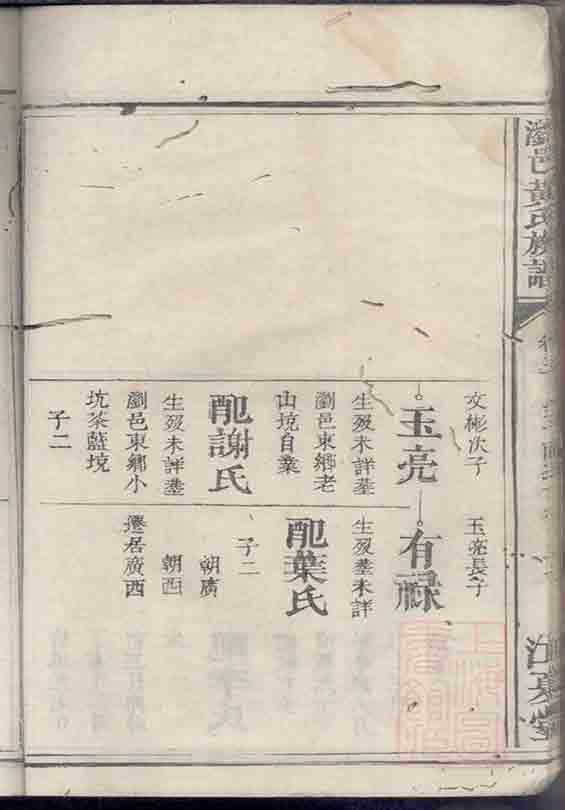 瀏邑黃氏族譜
江夏堂
文彬次子
玉亮
生歿未詳塟
瀏邑東鄉老
山境自業
配謝氏
生歿未詳塟
瀏邑東鄉小
坑茶藍境
子二
玉亮長子
有祿
生歿塟未詳
配葉氏
子二
朝廣
朝西
遷居廣西